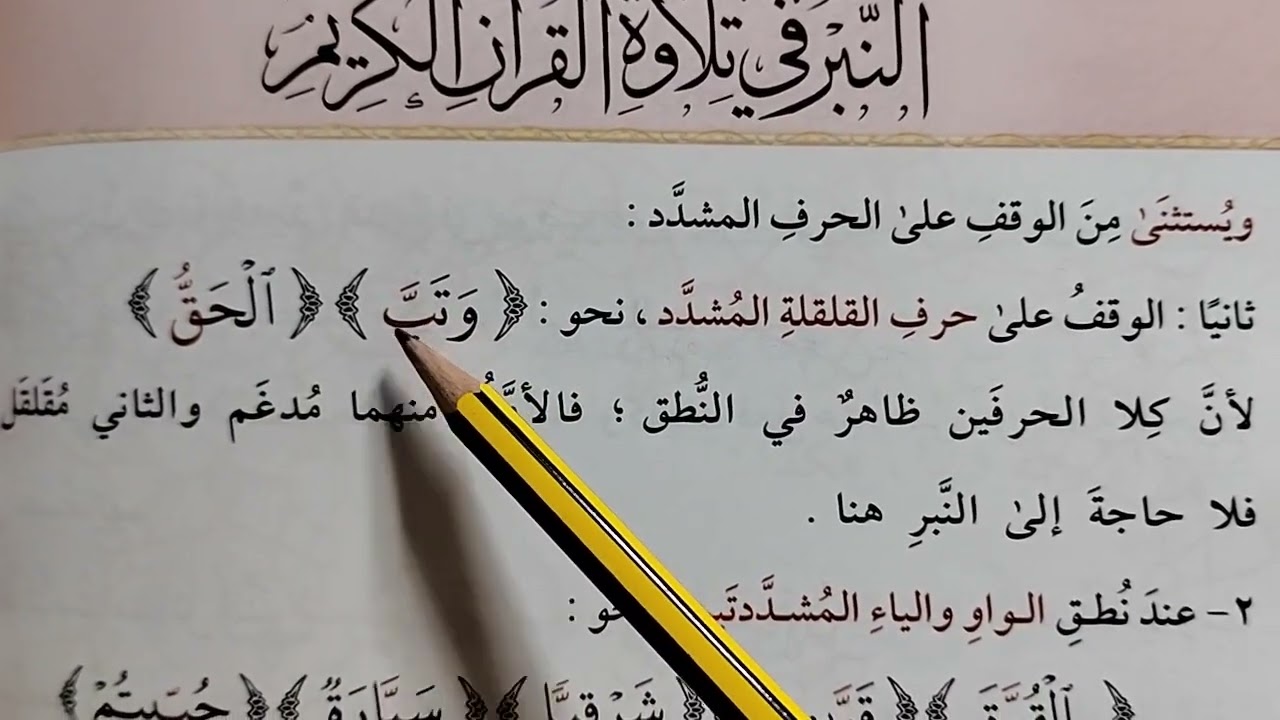 النَّبْرُ فِي تِلَاوَةِ القُرْآنِ الكَرِيمِ
ويُستثنَىٰ مِنَ الوقفِ علىٰ الحرفِ المشدَّد :
ثانيًا : الوقفُ علىٰ حرفِ القلقلةِ المُشدَّد ، نحو : ﴿ وَتَبَّ ﴾ ﴿ ٱلْحَقُّ ﴾
لأنَّ كِلا الحرفَين ظاهرٌ في النُّطق ؛ منهما مُدغَم والثاني مُقَلقَل
فلا حاجةَ إلىٰ النَّبرِ هنا .
٢- عندَ نُطقِ الواوِ والياءِ :
﴿ ٱلْقُوَّةَ ﴾ ﴿ شَرْقِيًّا ﴾ ﴿ سَيَّارَةٌ ﴾ ﴿ حُيِّيتُمْ ﴾